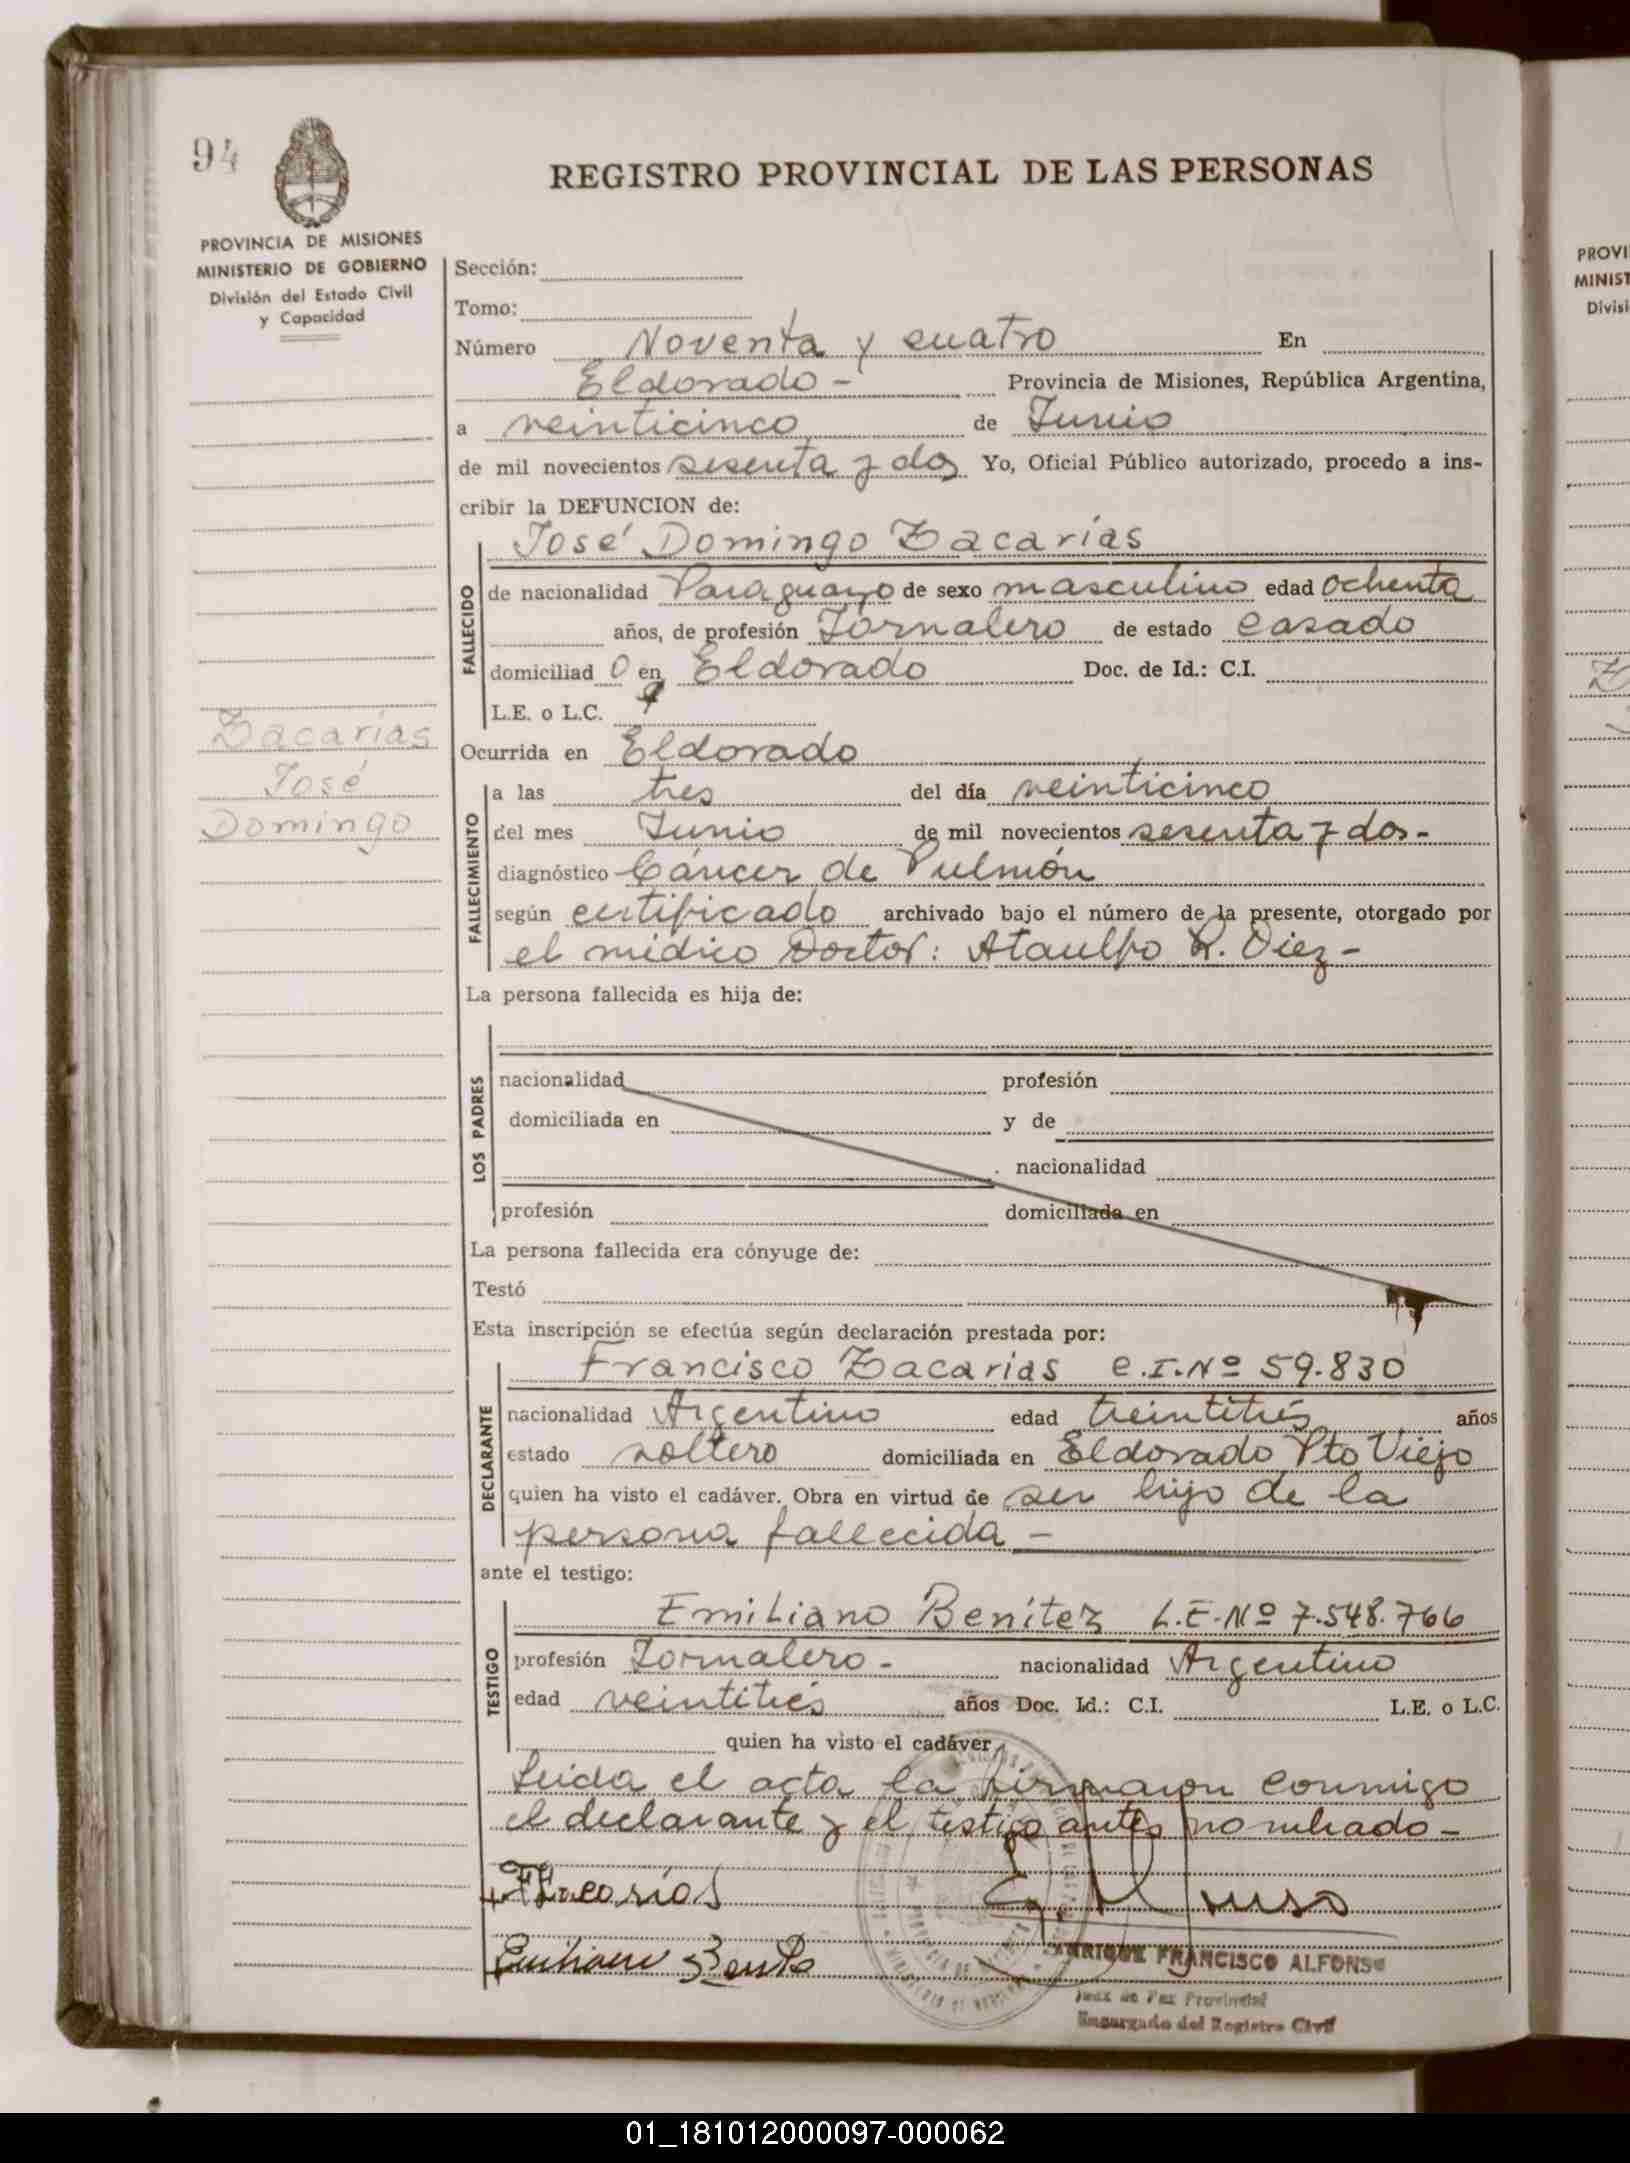 94
REGISTRO PROVINCIAL DE LAS PERSONAS
PROVINCIA DE MISIONES
MINISTERIO DE GOBIERNO
División del Estado Civil
y Capacidad
Sección:
Tomo:
Número Noventa y cuatro En
Eldorado - Provincia de Misiones, República Argentina,
a veinticinco de Junio
de mil novecientos sesenta y dos Yo, Oficial Público autorizado, procedo a ins-
cribir la DEFUNCION de:
José Domingo Zacarías
FALLECIDO
de nacionalidad Paraguayo de sexo masculino edad ochenta
años, de profesión Jornalero de estado casado
domiciliad o en Eldorado Doc. de Id.: C.I.
L.E. o L.C.
Zacarías
José
Domingo
Ocurrida en Eldorado
FALLECIMIENTO
a las tres del día veinticinco
del mes Junio de mil novecientos sesenta y dos-
diagnóstico Cáncer de Pulmón
según certificado archivado bajo el número de la presente, otorgado por
el médico Doctor: Ataulfo R. Diez -
La persona fallecida es hija de:
LOS PADRES
nacionalidad profesión
domiciliada en y de
nacionalidad
profesión domiciliada en
La persona fallecida era cónyuge de:
Testó
Esta inscripción se efectúa según declaración prestada por:
Francisco Zacarias C.I.Nº 59.830
DECLARANTE
nacionalidad Argentino edad treintitrés años
estado soltero domiciliada en Eldorado Pto Viejo
quien ha visto el cadáver. Obra en virtud de ser hijo de la
persona fallecida -
ante el testigo:
Emiliano Benítez L.E.Nº 7.548.766
TESTIGO
profesión Jornalero - nacionalidad Argentino
edad veintitrés años Doc. Id.: C.I. L.E. o L.C.
quien ha visto el cadáver
Leida el acta la firmaron conmigo
el declarante y el testigo antes nombrado-
FZacarías
Emiliano Benitez
ENRIQUE FRANCISCO ALFONSO
Juez de Paz Provincial
Encargado del Registro Civil
PROVI
MINIST
Divisi
01_181012000097-000062